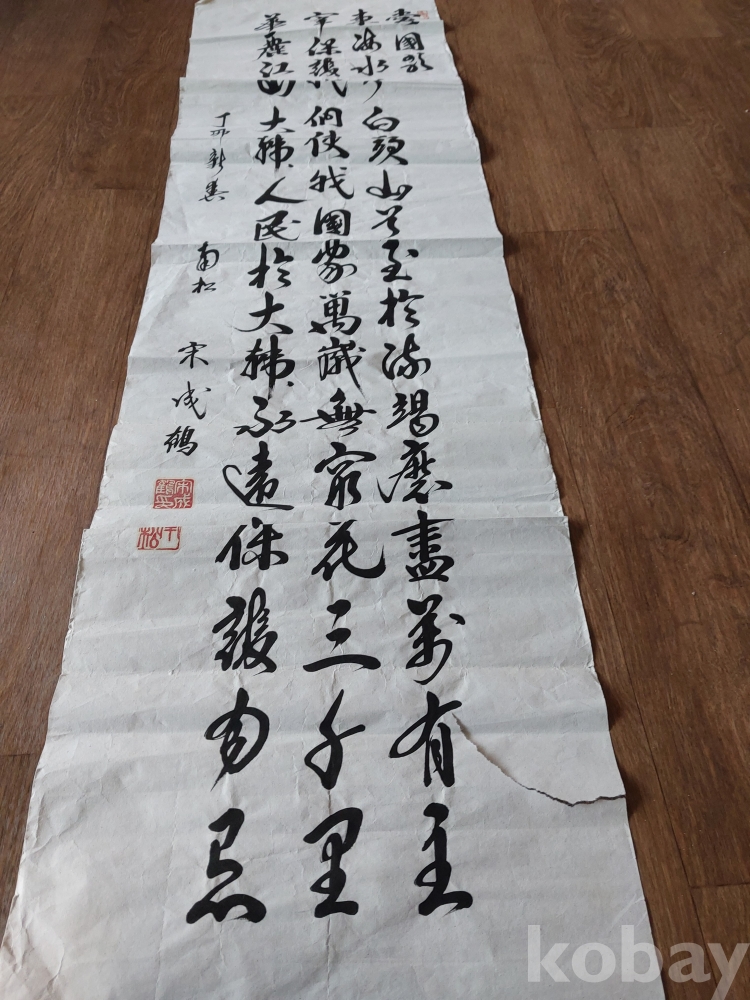 愛國歌
東海水白頭山至於竭磨盡萬有主
宰保護們使我國家萬歲無窮花三千里
華麗江山大韓人民於大韓永遠保護勿忘
丁卯新春 南松 宋成鶴
宋成鶴印
kobay